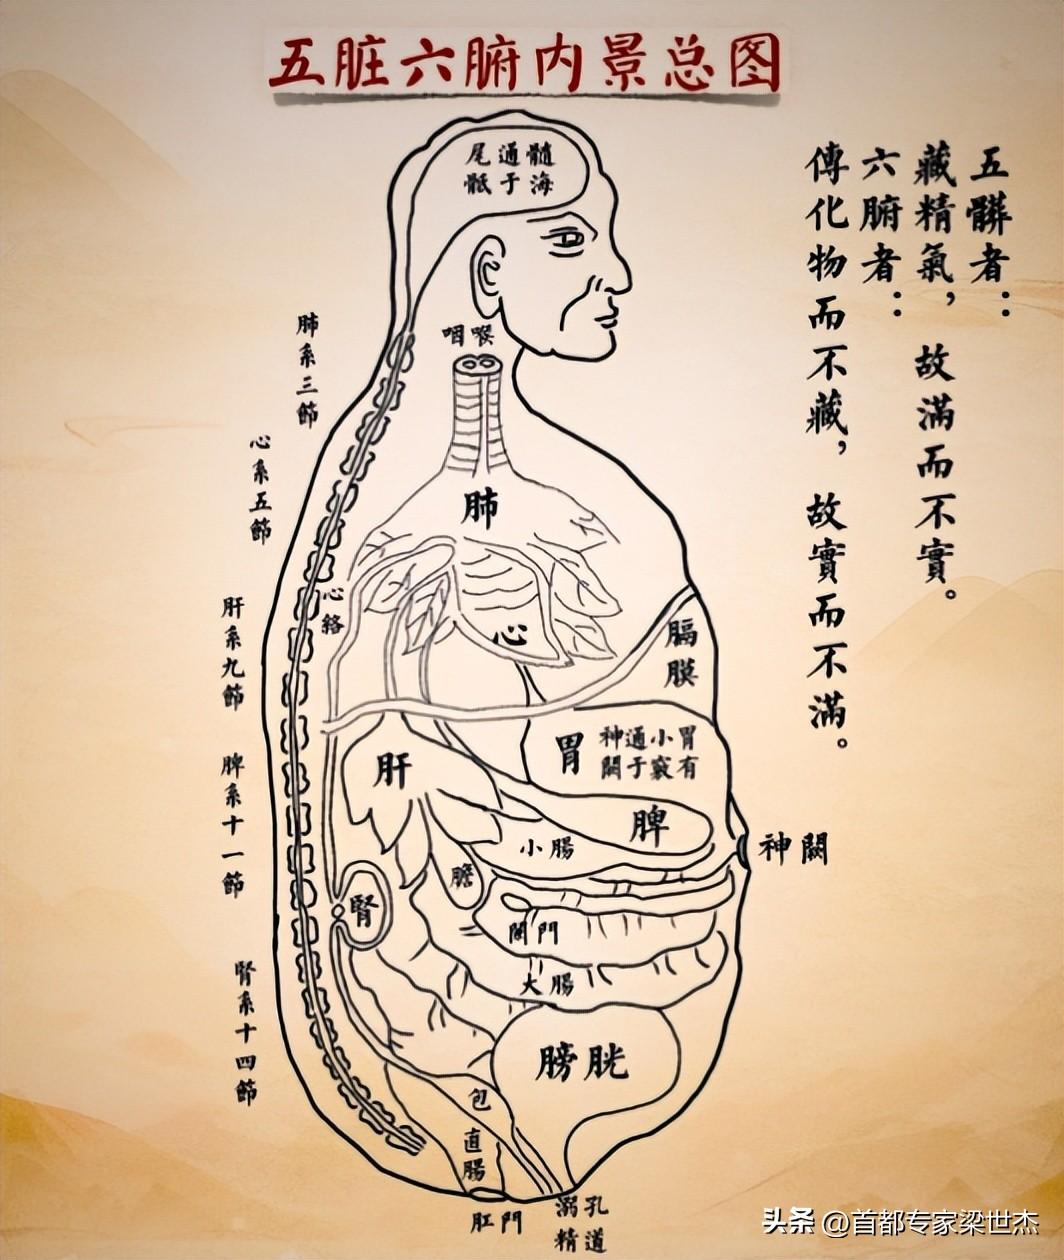 五脏六腑内景总图
五髒者：
藏精氣，故滿而不實。
六腑者：
傳化物而不藏，故實而不滿。
髓海
通于
尾骶
咽喉
肺系三節
心系五節
肺
心絡
心
膈膜
肝系九節
胃
胃有
小竅
通于
神闕
肝
脾系十一節
脾
小腸
神闕
膽
腎
闌門
大腸
腎系十四節
膀胱
包
直腸
肛門
溺孔
精道
头条 @首都专家梁世杰